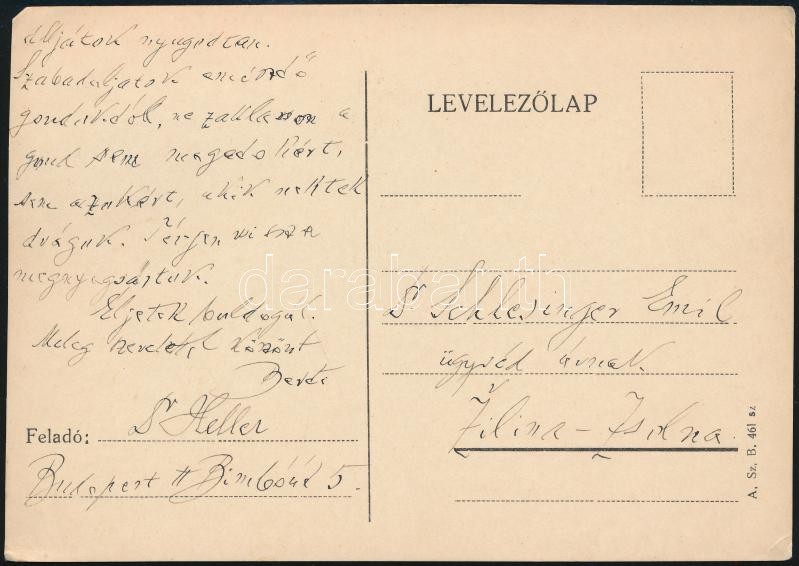 álljátok nyugodtan.
Szabaduljatok emésztő
gondoktól, ne zaklasson a
gond sem magatokért,
sem azokért, akik nektek
drágák. Térjen vissza
megnyugvástok.
Éljetek boldogul.
Meleg szeretettel köszönt
Berti
Feladó: Dr Heller
Budapest II Bimbó út 5.
LEVELEZŐLAP
Dr Schlesinger Emil
ügyvéd úrnak
Žilina - Zsolna
A. Sz. B. 461 sz
darabanth